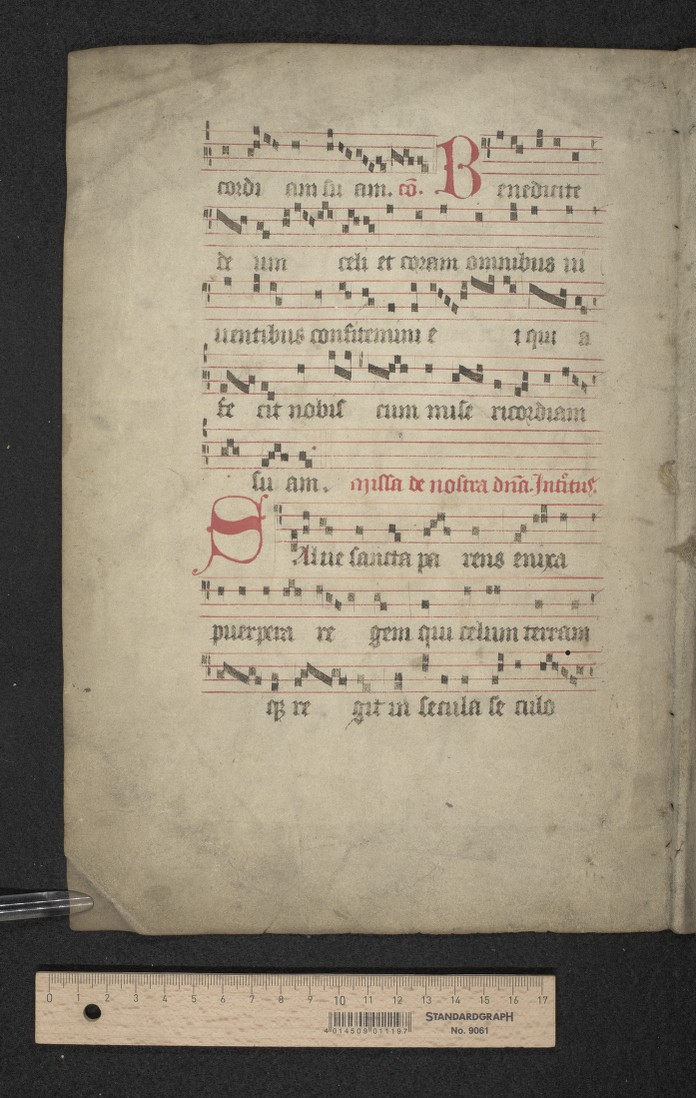 cordi am su am. cō. Benedicite
de um celi et coram omnibus ui
uentibus confitemini e i qui a
fe cit nobis cum mise ricordiam
su am. missa de nostra dn̄a. Introitus.
SAlue sancta pa rens enixa
puerpera re gem qui celum terram
qȝ re git in secula se culo
0 1 2 3 4 5 6 7 8 9 10 11 12 13 14 15 16 17
STANDARDGRAPH
No. 9061
4 014509 011197